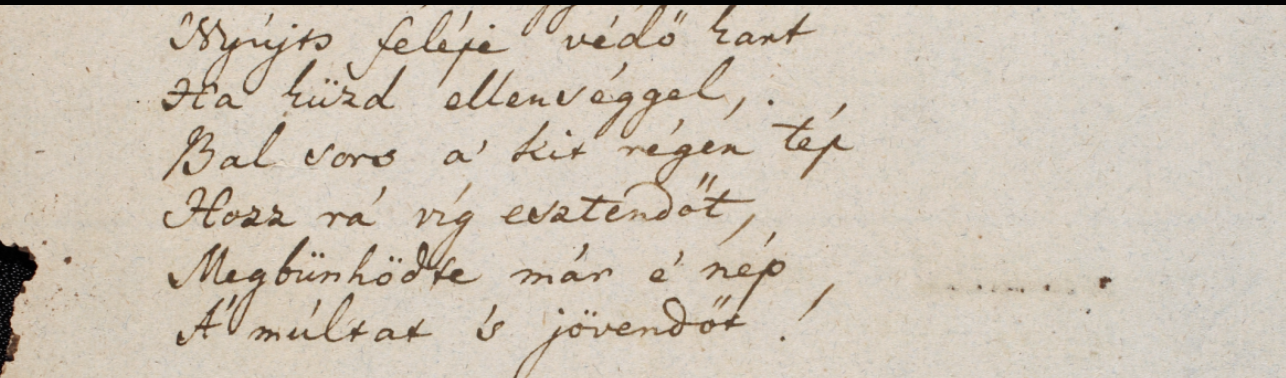 Nyújts feléje védő kart
Ha küzd ellenséggel,
Bal sors a' kit régen tép
Hozz rá víg esztendőt,
Megbünhödte már é nép,
A' múltat 's jövendőt!